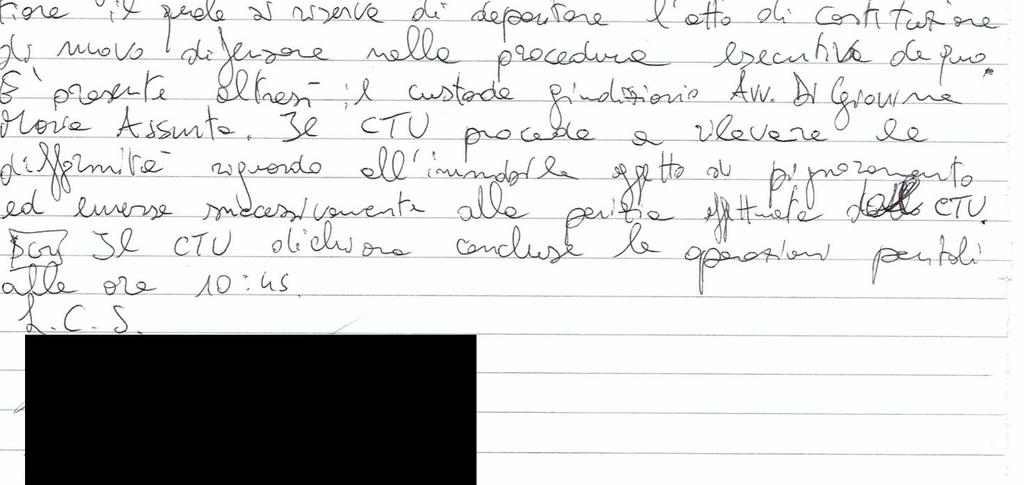 fiore il quale si riserva di depositare l'atto di costituzione
di nuovo difensore nella procedura esecutiva de quo.
È presente altresì il custode giudiziario Avv. Di Giovanna
Maria Assunta. Il CTU procede a rilevare le
difformità riguardo all'immobile oggetto di pignoramento
ed emerse successivamente alla perizia effettuata dal CTU.
Il CTU dichiara concluse le operazioni peritali
alle ore 10:45.
L.C.S.